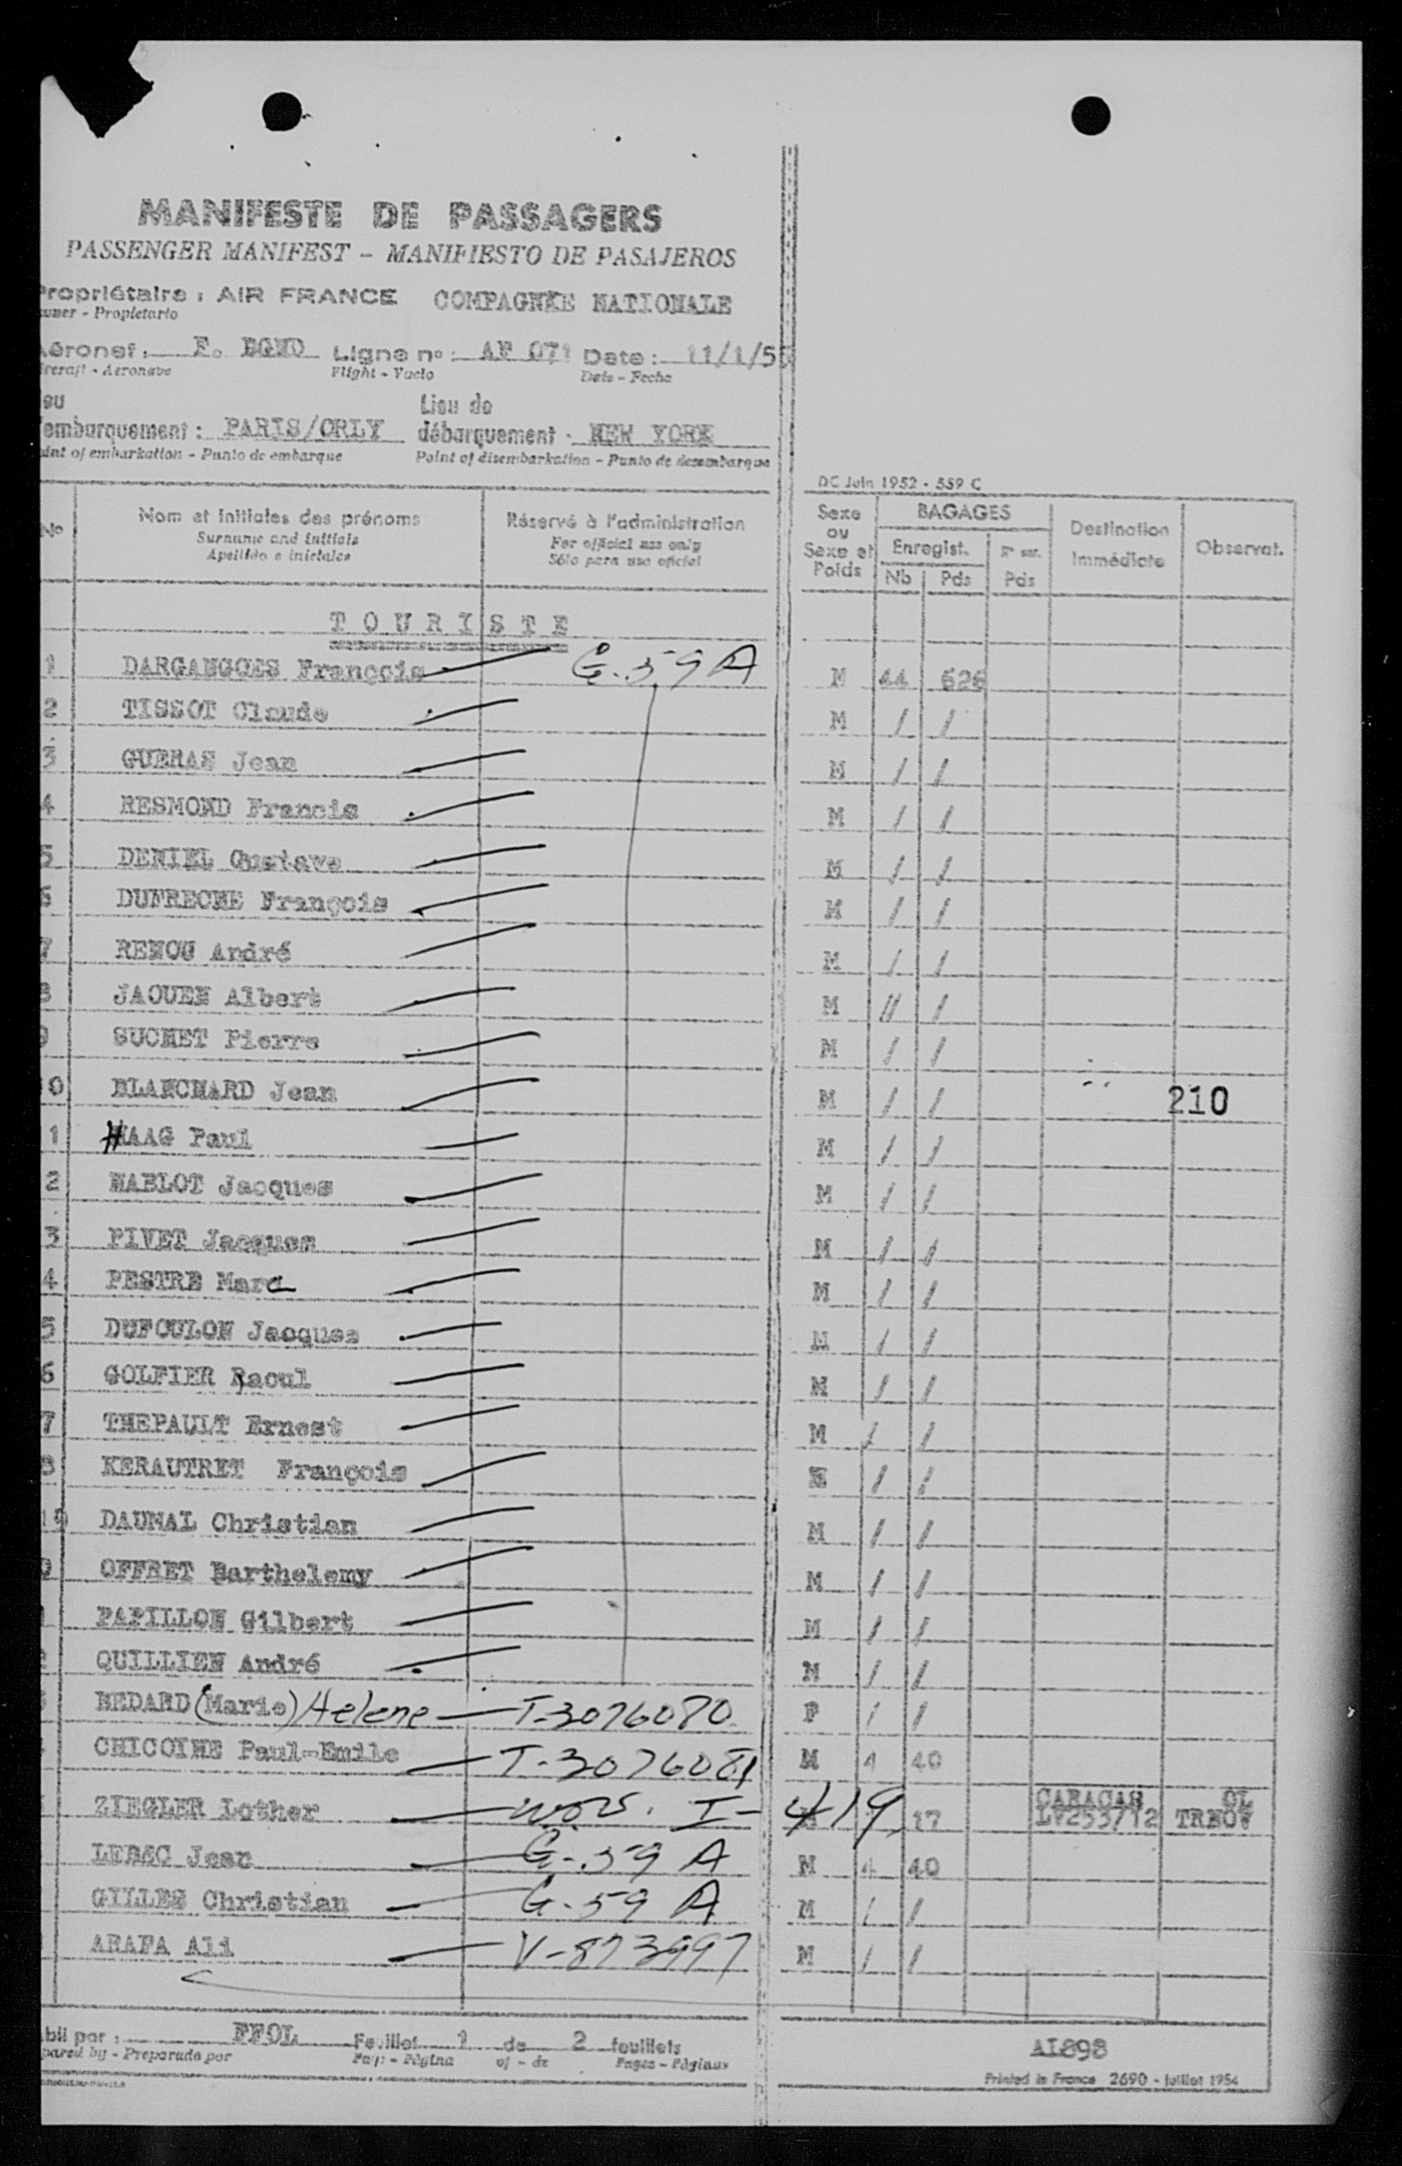 MANIFESTE DE PASSAGERS
PASSENGER MANIFEST – MANIFIESTO DE PASAJEROS
Propriétaire : AIR FRANCE COMPAGNIE NATIONALE
Owner - Propietario
Aéronef : F. BGND Ligne n° : AF 071 Date : 11/1/55
Aircraft - Aeronave Flight - Vuelo Date - Fecha
Lieu de
embarquement : PARIS/ORLY débarquement : NEW YORK
Point of embarkation - Punto de embarque Point of disembarkation - Punto de desembarque
DC Juin 1952 - 559 C
No Nom et initiales des prénoms Réservé à l'administration Sexe ou Sexe et Poids BAGAGES Destination Immédiate Observat.
Surname and initials For official use only Enregist.
Apellido e iniciales Sólo para uso oficial Nb Pds Pds
TOURISTE
1 DARGANGOES François G-59 A M 44 626
2 TISSOT Claude M / /
3 GUERAS Jean M / /
4 RESMOND Francis M / /
5 DENIEL Gustave M / /
6 DUFRECHE François M / /
7 RENOU André M / /
8 JAOUEN Albert M // /
9 SUCHET Pierre M / /
0 BLANCHARD Jean M / / 210
1 HAAG Paul M / /
2 NABLOT Jacques M / /
3 PIVET Jacques M / /
4 PESTRE Marc M / /
5 DUFOULON Jacques M / /
6 GOLFIER Raoul M / /
7 THEPAULT Ernest M / /
8 KERAUTRET François M / /
19 DAUMAL Christian M / /
0 OFFRET Barthelemy M / /
PAPILLON Gilbert M / /
QUILLIEN André M / /
BEDARD (Marie) Helene T-3076080 F / /
CHICOINE Paul-Emile T-3076081 M 4 40
ZIEGLER Lother I-419 17 CARACAS LV253/12 OL TRBOW
LEBEC Jean G-59 A M 4 40
GILLES Christian G-59 A M / /
ARAFA Ali V-873997 M / /
FFOL Feuillet 1 de 2 feuillets
Prepared by - Preparado por Page - Página of - de Pages - Páginas
AI898
Printed in France 2690 - juillet 1954